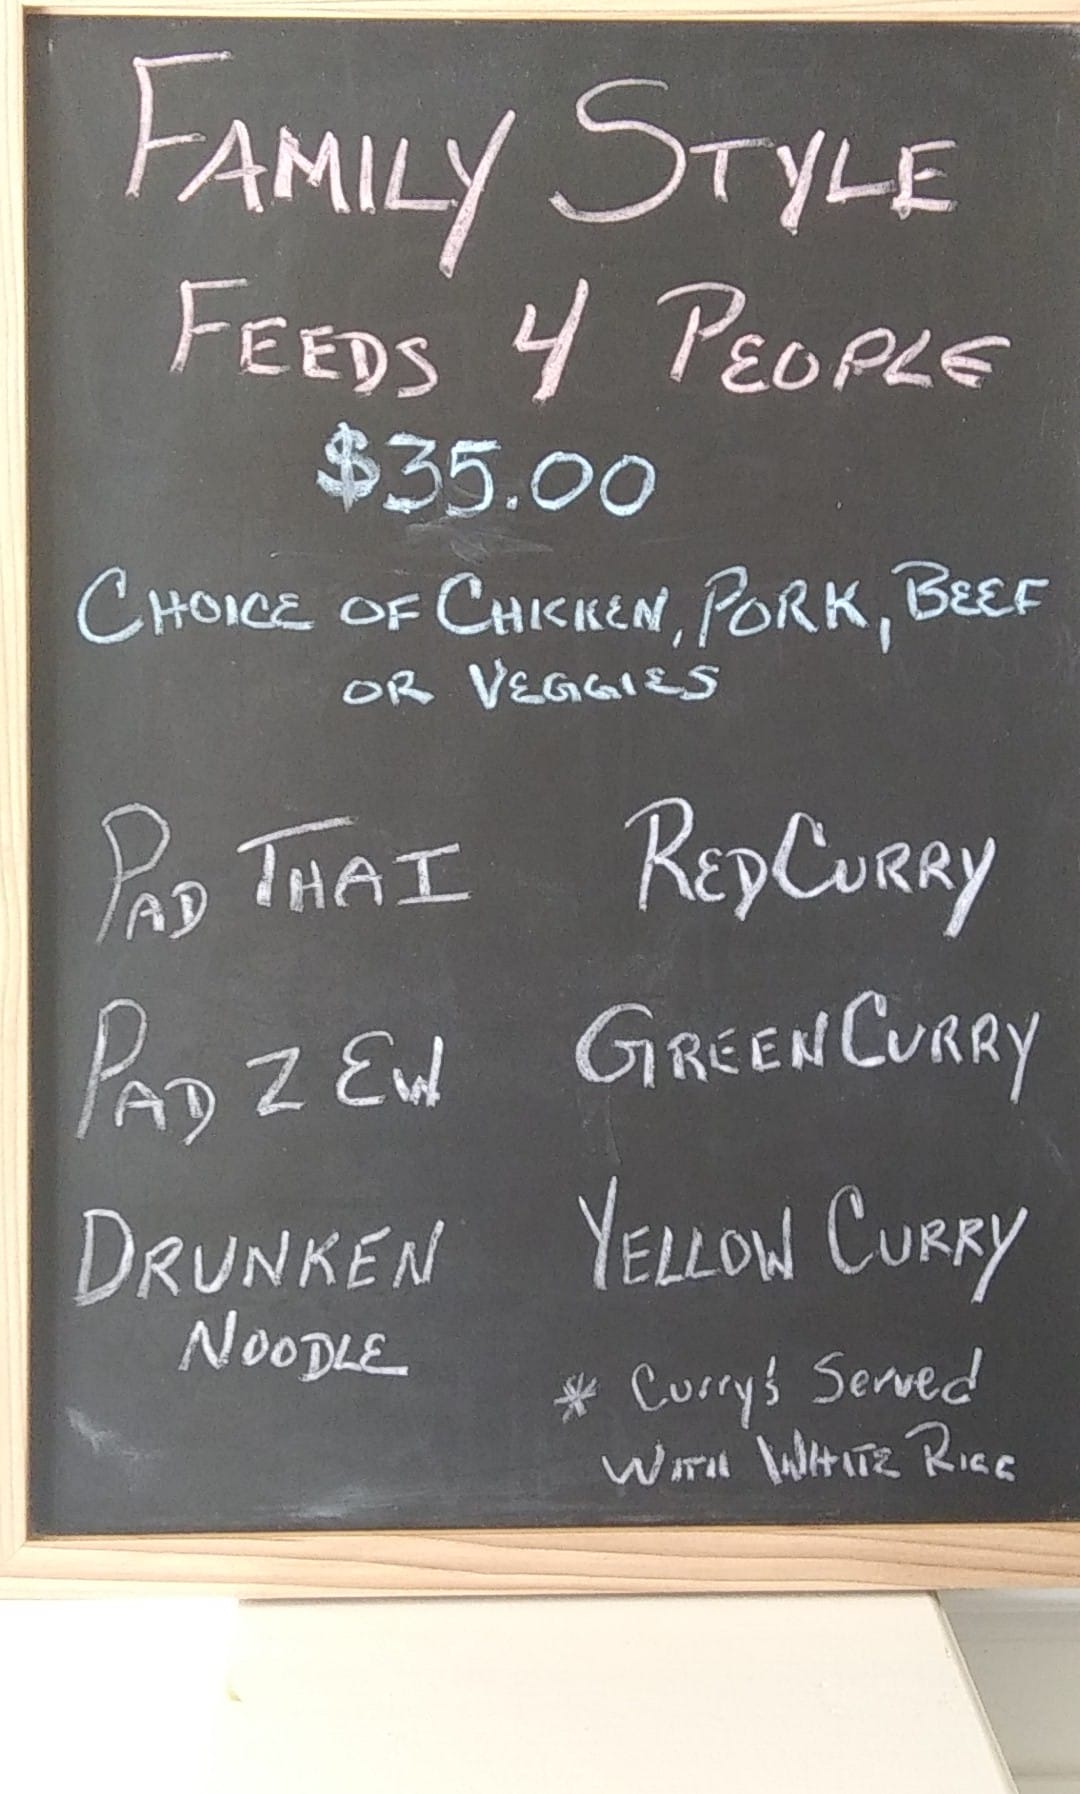 FAMILY STYLE
FEEDS 4 PEOPLE
$35.00
CHOICE OF CHICKEN, PORK, BEEF
OR VEGGIES
PAD THAI
PAD Z EW
DRUNKEN
NOODLE
RED CURRY
GREEN CURRY
YELLOW CURRY
* Curry's Served
WITH WHITE RICE